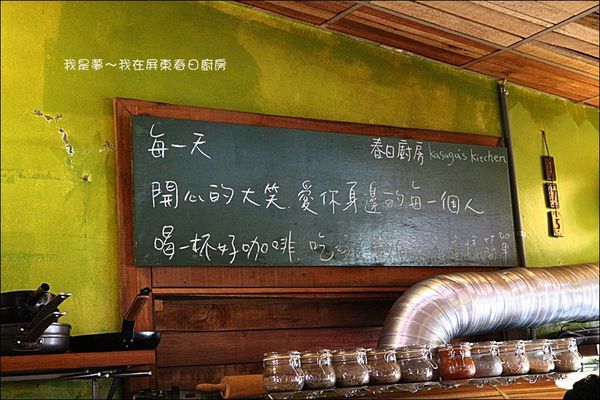 我是夢～我在屏東春日廚房
每一天
春日廚房 kasuga's kitchen
開心的大笑.愛你身邊的每一個人
喝一杯好咖啡.吃